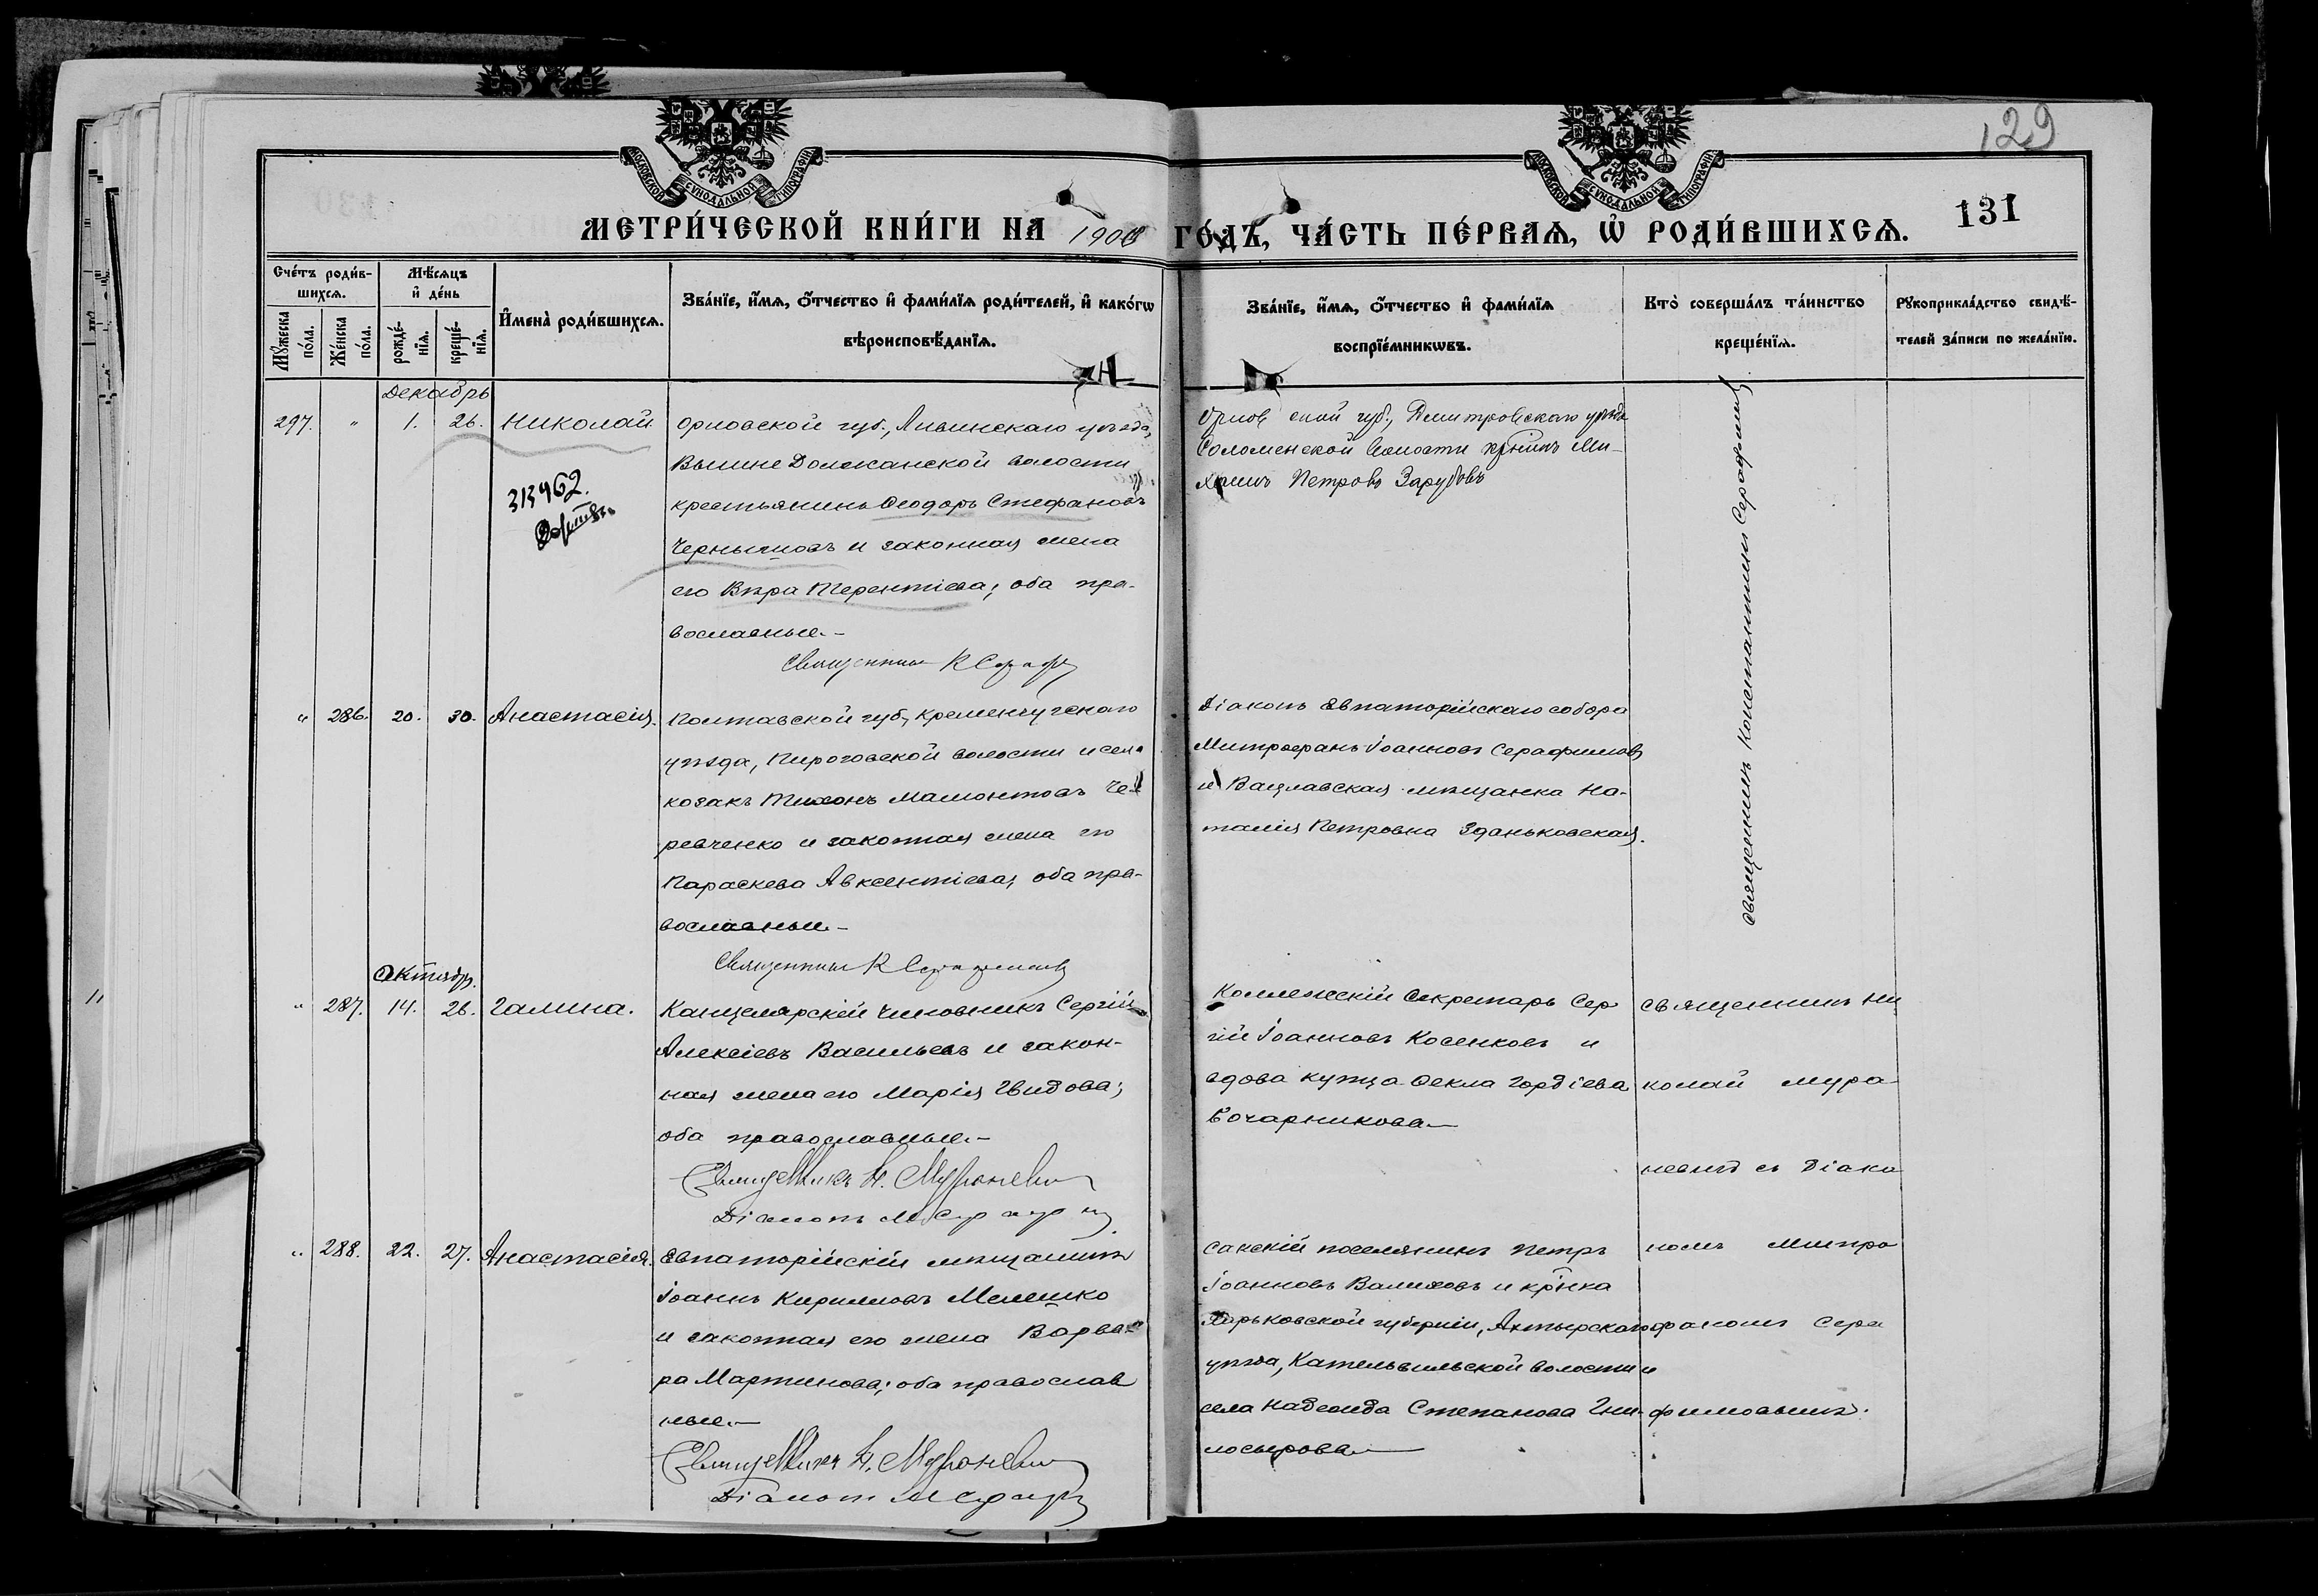 129
131
МОСКОВСКОЙ СУНОДАЛЬНОЙ ТИПОГРАФІИ
МОСКОВСКОЙ СУНОДАЛЬНОЙ ТИПОГРАФІИ
МЕТРИ́ЧЕСКОЙ КНИ́ГИ НА 1908 ГО́ДЪ, ЧА́СТЬ ПЕ́РВАѦ, Ѡ РОДИ́ВШИХСѦ.
Сче́тъ роди́в-
шихсѧ.
Мꙋ́жеска по́ла.
Же́нска по́ла.
Мѣ́сѧцъ
и҆ де́нь
рожде́-
нїѧ.
креще́-
нїѧ.
И҆мена̀ роди́вшихсѧ.
Зва́нїе, и҆́мѧ, ѻ҆́тчество и҆ фами́лїѧ роди́телей, и҆ како́гѡ
вѣроисповѣ́данїѧ.
Зва́нїе, и҆́мѧ, ѻ҆́тчество и҆ фами́лїѧ
воспрїе́мникѡвъ.
Кто̀ соверша́лъ та́инство
креще́нїѧ.
Рꙋкоприкла́дство свидѣ́-
телей за́писи по жела́нїю.
Декабрь
297. " 1. 26. Николай
Орловской губ., Ливинскаго уѣзда,
Вышне Должанской волости
крестьянинъ Ѳеодоръ Стефановъ
Чернышовъ и законная жена
его Вѣра Терентіева; оба пра-
вославные.-
Священникъ К Сераф
313962.
Орлов ской губ., Дмитровскаго уѣзда
Соломенской волости кр-нинъ Ми-
хаилъ Петровъ Зарубовъ
Священникъ Константинъ Серафимовъ
" 286. 20. 30. Анастасія.
Полтавской губ., Кременчугскаго
уѣзда, Пироговской волости и села
козакъ Тихонъ Мамонтовъ Че-
ревченко и законная жена его
Параскева Авксентіева; оба пра-
вославные.-
Священникъ К Серафимовъ
Діаконъ Евпаторійскаго собора
Митрофанъ Іоанновъ Серафимовъ
и Вацлавская мѣщанка На-
талія Петровна Зданьковская.
Октябрь.
" 287. 14. 26. Галина.
Канцелярскій чиновникъ Сергій
Алексіевъ Васильевъ и закон-
ная жена его Марія Гвидова;
оба православные.-
Священникъ Н.
Діаконъ М Сераф
Коллежскій Секретарь Сер
гій Іоанновъ Косенковъ и
вдова купца Ѳекла Гордіева
Бочарникова
Священникъ Ни
колай Мура
невичъ съ Діако
номъ Митро
фаномъ Сера
фимовымъ.
" 288. 22. 27. Анастасія.
Евпаторійскій мѣщанинъ
Іоаннъ Кирилловъ Мелешко
и законная его жена Варва-
ра Мартинова; оба православ
ные.-
Священникъ Н.
Діаконъ М Сераф
Сакскій поселянинъ Петръ
Іоанновъ Валиховъ и кр-нка
Харьковской губерніи, Ахтырскаго
уѣзда, Кательвильской волости и
села Надежда Степанова Гни-
лосырова